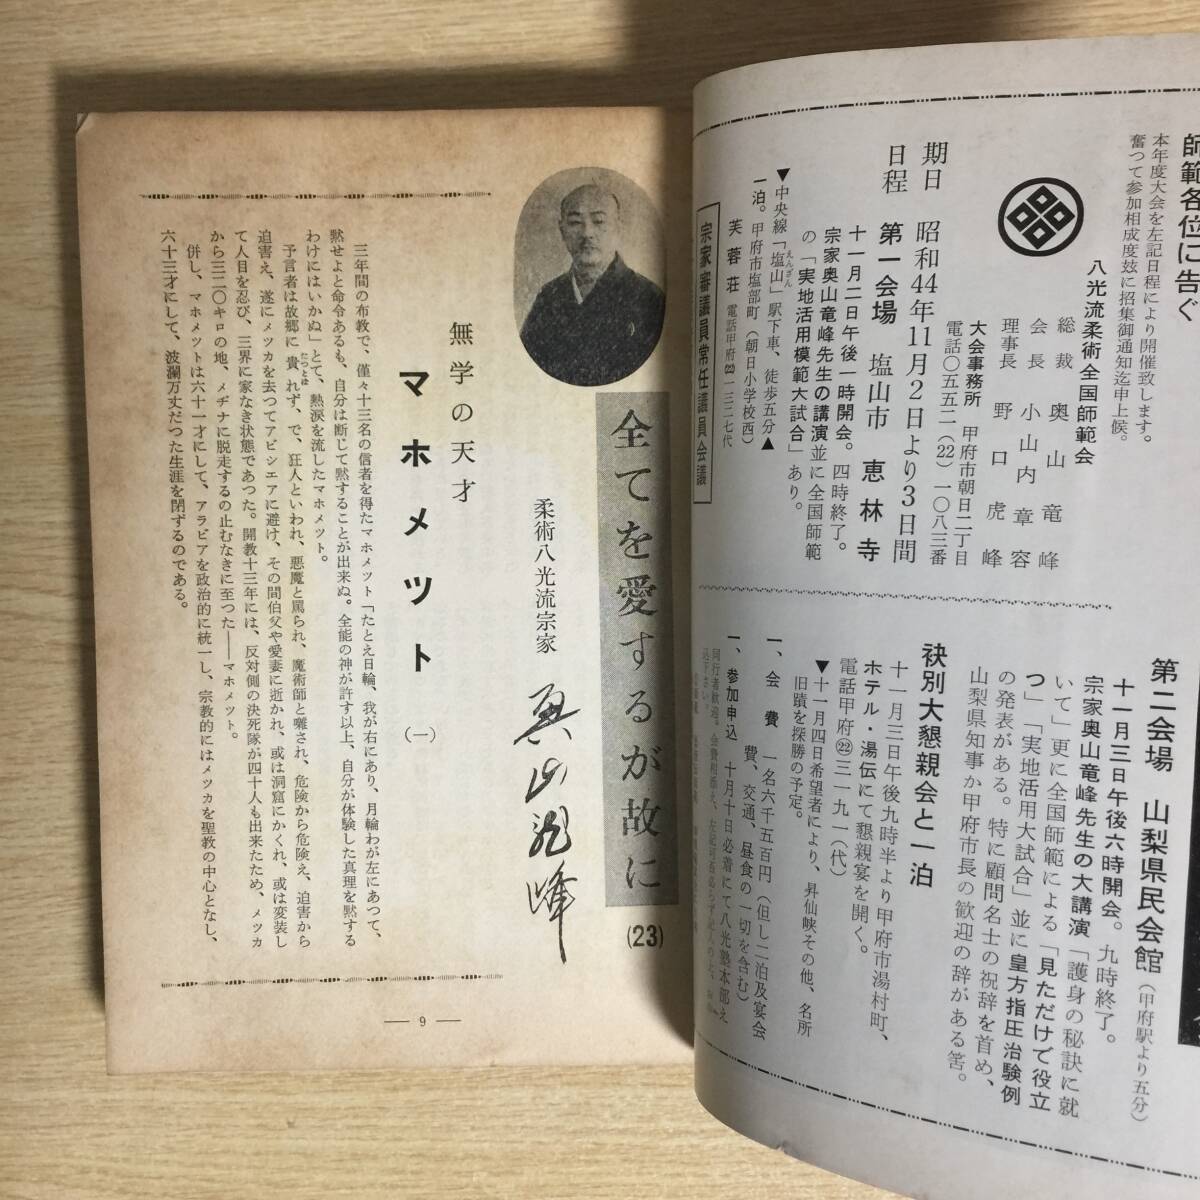 師範各位に告ぐ
本年度大会を左記日程により開催致します。
奮つて参加相成度玆に招集御通知迄申上候。
八光流柔術全国師範会
総裁 奥山竜峰
会長 小山内章容
理事長 野口虎峰
大会事務所 甲府市朝日二丁目
電話〇五五二(22)一〇八三番
期日 昭和44年11月2日より3日間
日程 第一会場 塩山市 恵林寺
十一月二日午後一時開会。四時終了。
宗家奥山竜峰先生の講演並に全国師範
の「実地活用模範大試合」あり。
▼中央線「塩山」駅下車、徒歩五分▲
えんざん
一泊。甲府市塩部町(朝日小学校西)
芙蓉荘 電話甲府㉒一三二七代
宗家審議員常任議員会議
第二会場 山梨県民会館(甲府駅より五分)
十一月三日午後六時開会。九時終了。
宗家奥山竜峰先生の大講演「護身の秘訣に就
いて」更に全国師範による「見ただけで役立
つ」「実地活用大試合」並に皇方指圧治験例
の発表がある。特に顧問名士の祝辞を首め、
山梨県知事か甲府市長の歓迎の辞がある筈。
袂別大懇親会と一泊
十一月三日午後九時半より甲府市湯村町、
ホテル・湯伝にて懇親宴を開く。
電話甲府㉒三一九一(代)
▼十一月四日希望者により、昇仙峡その他、名所
旧蹟を探勝の予定。
一、会費 一名六千五百円(但し二泊及宴会
費、交通、昼食の一切を含む)
一、参加申込 十月十日必着にて八光塾本部え
全てを愛するが故に
(23)
柔術八光流宗家 奥山龍峰
無学の天才
マホメツト (一)
三年間の布教で、僅々十三名の信者を得たマホメツト「たとえ日輪、我が右にあり、月輪わが左にあつて、
黙せよと命令あるも、自分は断じて黙することが出来ぬ。全能の神が許す以上、自分が体験した真理を黙する
わけにはいかぬ」とて、熱涙を流したマホメツト。
予言者は故郷に貴れず、で、狂人といわれ、悪魔と罵られ、魔術師と囃され、危険から危険え、迫害から
たつとば
迫害え、遂にメツカを去つてアビシエアに避け、その間伯父や愛妻に逝かれ、或は洞窟にかくれ、或は変装し
て人目を忍び、三界に家なき状態であつた。開教十三年には、反対側の決死隊が四十人も出来たため、メツカ
から三二〇キロの地、メヂナに脱走するの止むなきに至つた――マホメツト。
併し、マホメツトは六十一才にして、アラビアを政治的に統一し、宗教的にはメツカを聖教の中心となし、
六十三才にして、波瀾万丈だつた生涯を閉ずるのである。
― 9 ―